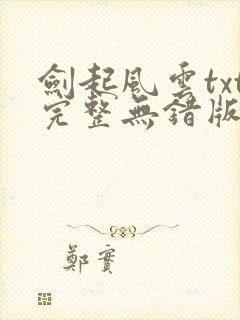 劍起風雲txt
完整無錯版
鄭實